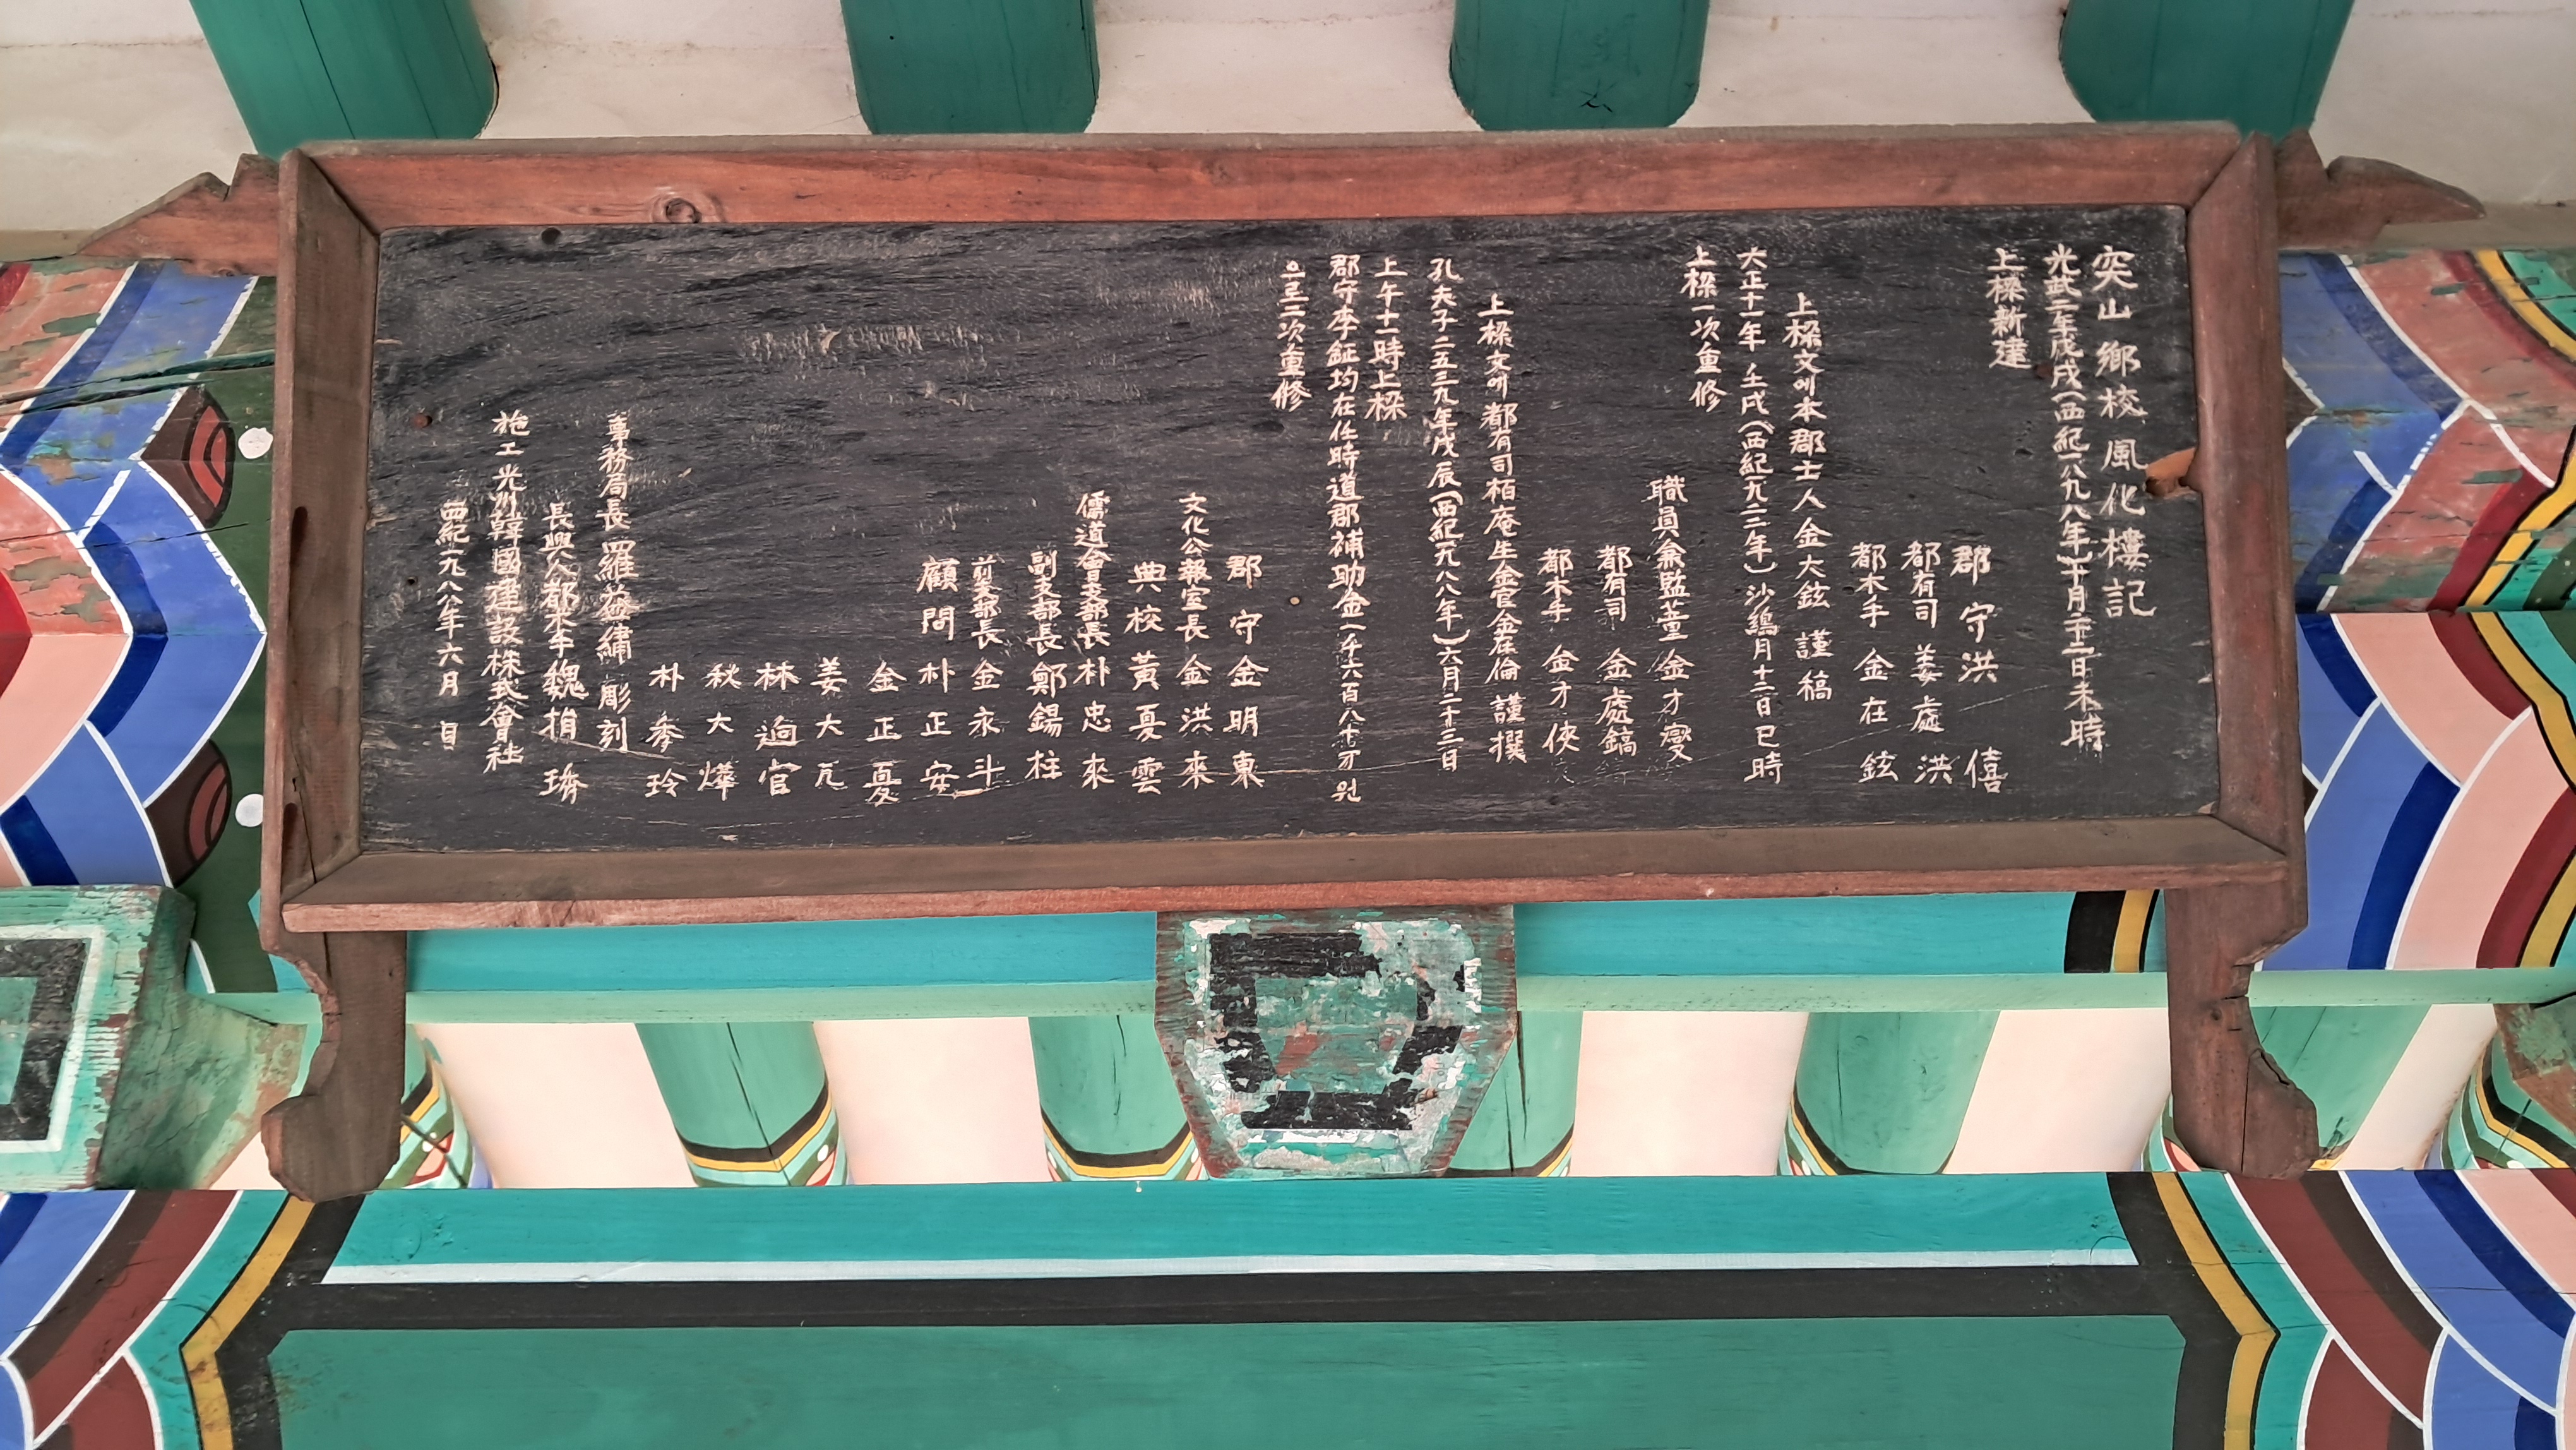 突山鄕校風化樓記
光武二年戊戌(西紀一八九八年)十月二十三日未時
上樑新建
郡守洪 僖
都有司 姜處洪
都木手 金在鉉
上樑文에本郡士人金大鉉 謹稿
大正十一年壬戌(西紀一九二二年) 月十二日巳時
上樑一次重修
職員兼監董 金才燮
都有司 金處鎬
都木手 金才俠
上樑文에都有司栢庵生金官金在倫 謹撰
孔夫子二五三九年戊辰(西紀一九八八年)六月二十三日
上午十一時上樑
郡守李鉦均在任時道郡補助金一千六百八十万원
으로二次重修
郡守金明東
文化公報室長 金洪來
典校 黃夏雲
儒道會支部長 朴忠來
副支部長 鄭錫柱
前支部長 金永斗
顧問 朴正安
金正夏
姜大元
林逈官
秋大燁
朴季玲
事務局長 羅 繡 彫刻
長興人都木手魏
施工光州韓國建設株式會社
西紀一九八八年六月 日